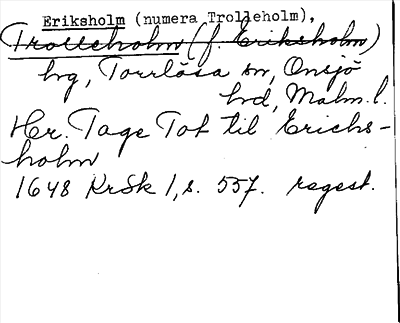 Eriksholm (numera Trolleholm),
Trolleholm (f. Eriksholm)
hrg, Torrlösa sn, Onsjö
hrd, Malm. l.
Hr. Tage Tot til Erichs-
holm
1648 KrSk 1, s. 557. regest.